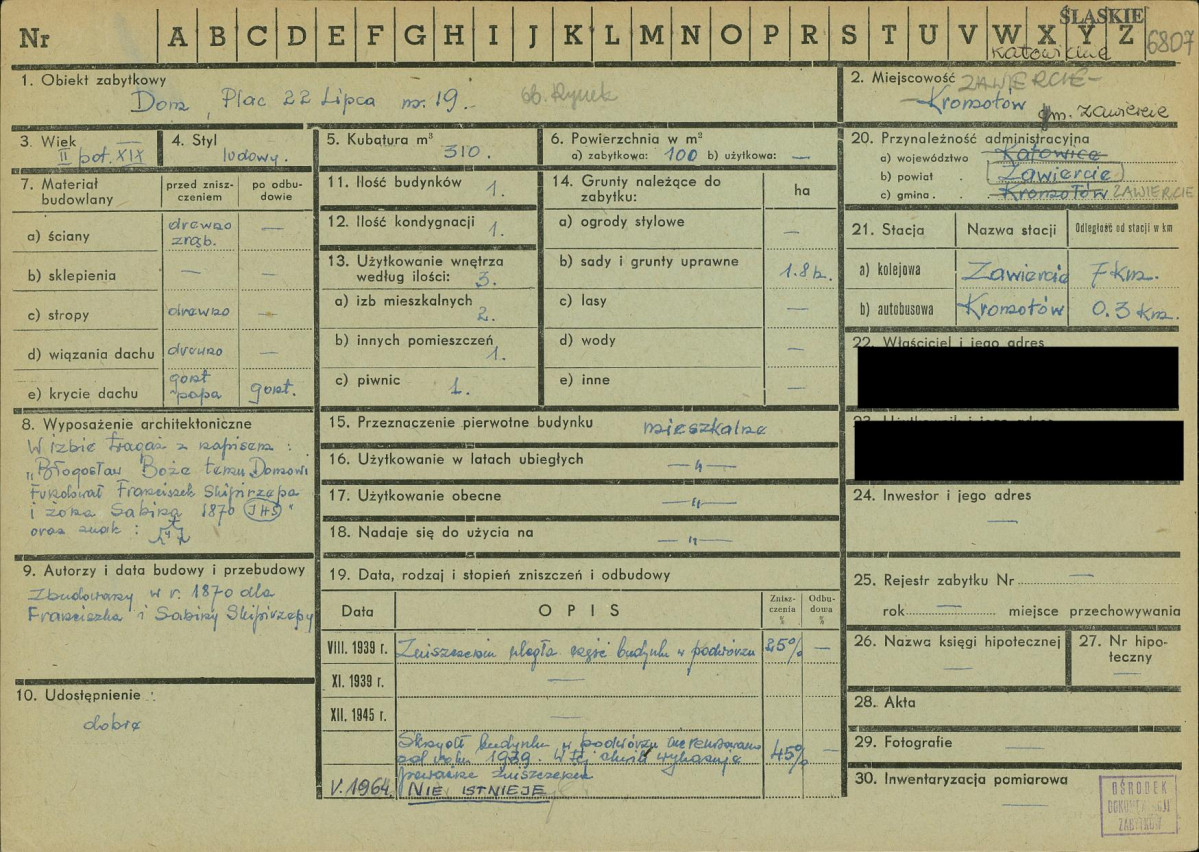 Nr A B C D E F G H I J K L M N O P R S T U V W X Y Z
ŚLĄSKIE
Katowickie
6807
1. Obiekt zabytkowy
Dom, Plac 22 Lipca nr. 19.
ob. Rynek
2. Miejscowość ZAWIERCIE-
Kromołów gm. Zawiercie
3. Wiek
II poł. XIX
4. Styl
ludowy.
5. Kubatura m³
310.
6. Powierzchnia w m²
a) zabytkowa: 100 b) użytkowa: —
20. Przynależność administracyjna
a) województwo Katowice
b) powiat . Zawiercie
c) gmina . Kromołów ZAWIERCIE
7. Materiał budowlany
przed zniszczeniem
po odbudowie
a) ściany drewno zrąb. —
b) sklepienia — —
c) stropy drewno —
d) wiązania dachu drewno —
e) krycie dachu gont papa gont.
11. Ilość budynków 1.
12. Ilość kondygnacji 1.
13. Użytkowanie wnętrza
według ilości: 3.
a) izb mieszkalnych 2.
b) innych pomieszczeń 1.
c) piwnic 1.
14. Grunty należące do
zabytku:
ha
a) ogrody stylowe —
b) sady i grunty uprawne 1.8
c) lasy —
d) wody —
e) inne —
21. Stacja Nazwa stacji Odległość od stacji w km
a) kolejowa Zawiercie 7 km.
b) autobusowa Kromołów 0.3 km.
22. Właściciel i jego adres
8. Wyposażenie architektoniczne
W izbie tragarz z napisem :
„Błogosław Boże temu Domowi
Fundował Franciszek Skipirzepa
i żona Sabina 1870 JHS"
oraz znak :
9. Autorzy i data budowy i przebudowy
Zbudowany w r. 1870 dla
Franciszka i Sabiny Skipirzepy
10. Udostępnienie
dobre
15. Przeznaczenie pierwotne budynku mieszkalne
16. Użytkowanie w latach ubiegłych —„—
17. Użytkowanie obecne —„—
18. Nadaje się do użycia na —„—
19. Data, rodzaj i stopień zniszczeń i odbudowy
Data OPIS Zniszczenia % Odbudowa %
VIII. 1939 r. Zniszczeniu uległa część budynku w podwórzu 25% —
XI. 1939 r. —
XII. 1945 r. —
Skrzydło budynku w podwórzu nie remontowano
od roku 1939. W tej chwili wykazuje 45% —
poważne zniszczenia
V. 1964. NIE ISTNIEJE
24. Inwestor i jego adres
—
25. Rejestr zabytku Nr —
rok — miejsce przechowywania
26. Nazwa księgi hipotecznej
—
27. Nr hipoteczny
—
28. Akta
29. Fotografie —
30. Inwentaryzacja pomiarowa
—
OŚRODEK
DOKUMENTACJI
ZABYTKÓW